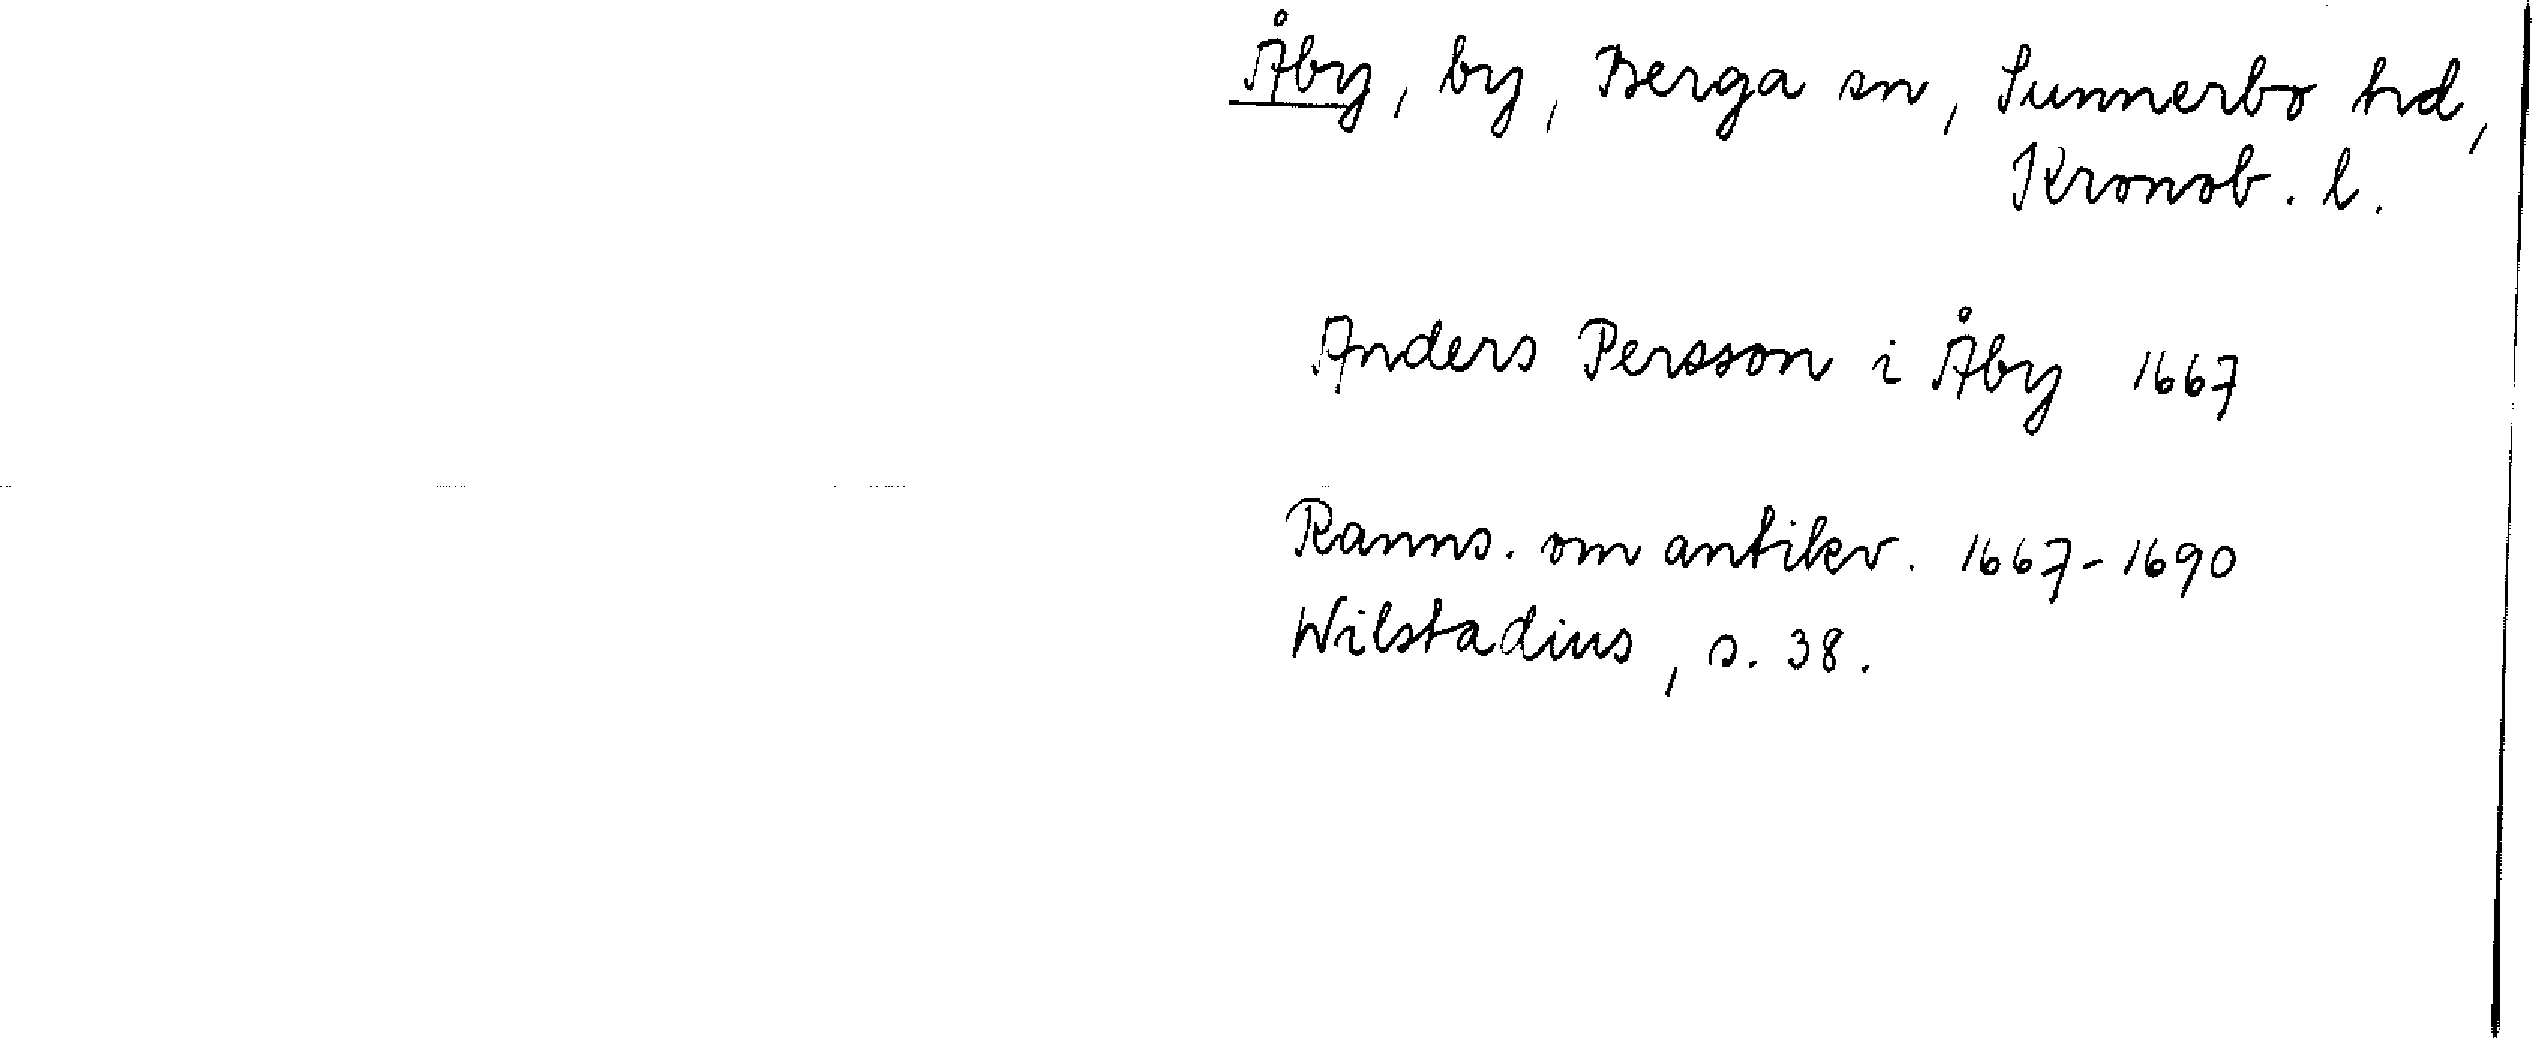 Åby, by, Berga sn, Sunnerbo hd,
Kronob. l.
Anders Persson i Åby 1667
Ranns. om antikv. 1667-1690
Wilstadius, s. 38.